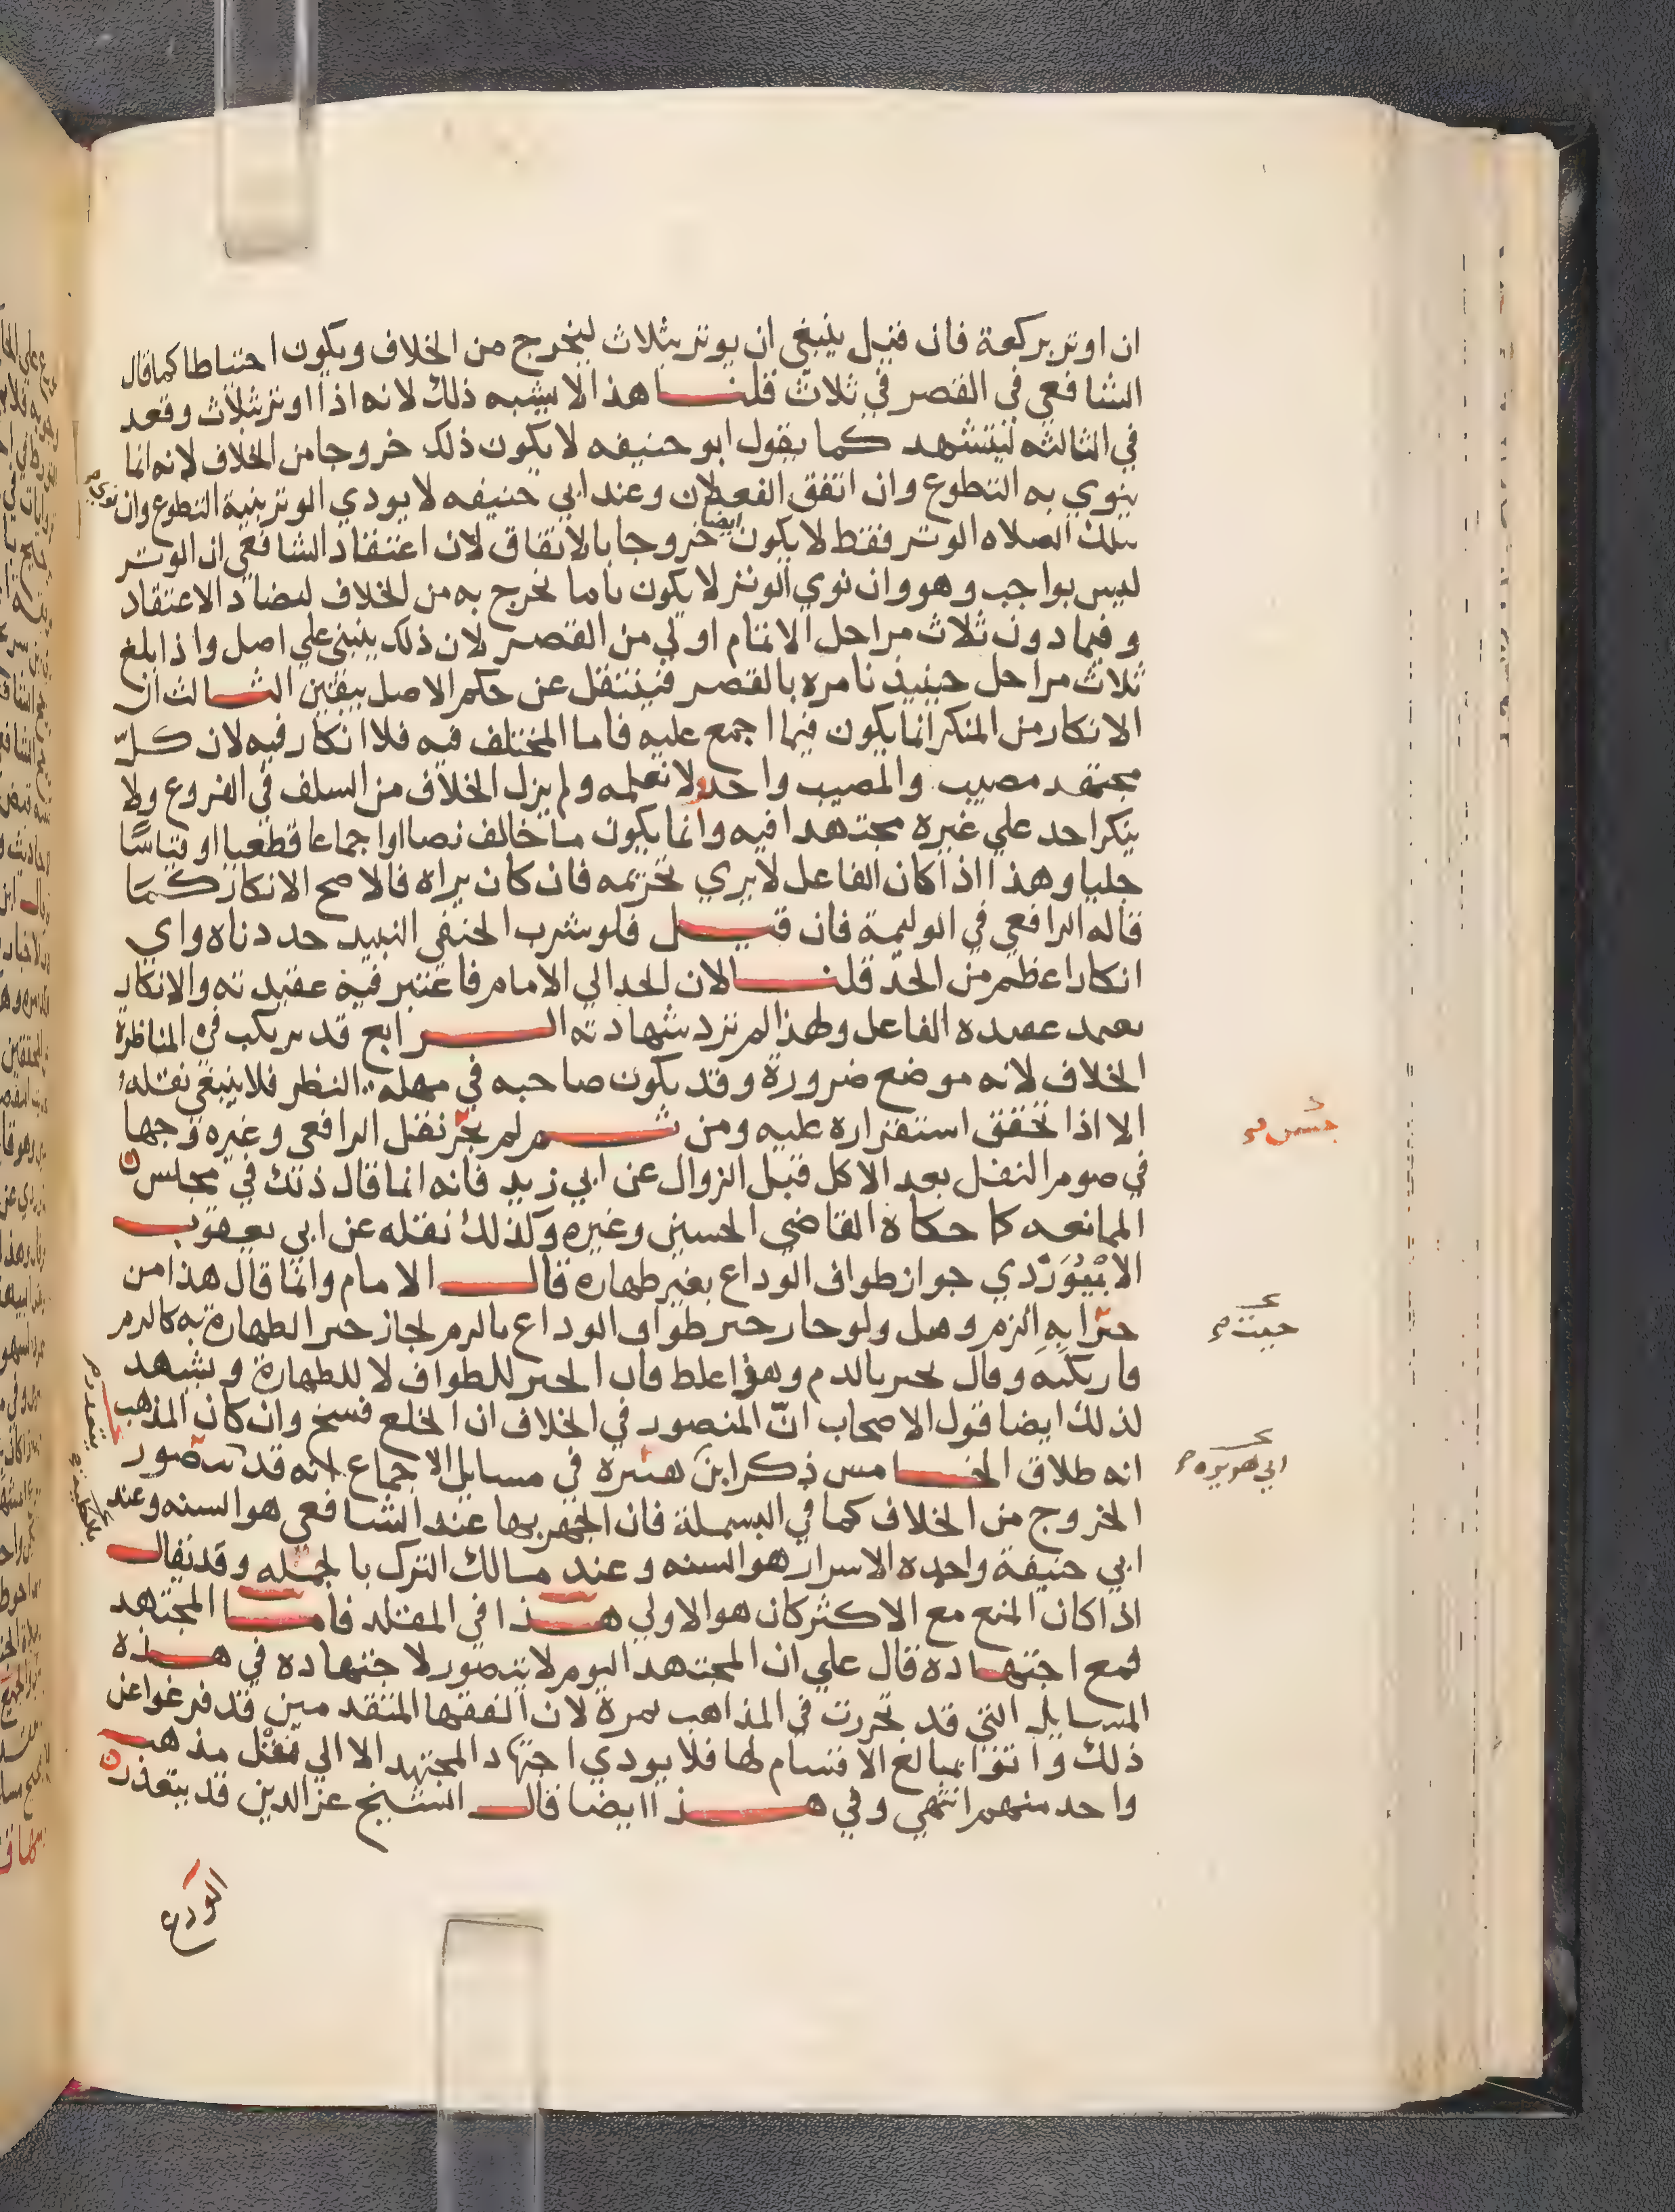 ان اوتر بركعة فان قيل ينبغي ان يوتر بثلاث ليخرج من الخلاف ويكون احتياطا كما قال
الشافعي في القصر في ثلاث قلنا هذا لا يشبه ذلك لانه اذا اوتر بثلاث وقعد
في الثالثه ليتشهد كما يقول ابو حنيفه لا يكون ذلك خروجا من الخلاف لانه انما
ينوي به التطوع وان اتفق الفعلان وعند ابي حنيفه لا يودي الوتر بنية التطوع وان نوي
بتلك الصلاه الوتر فقط لا يكون ايضا خروجا بالاتفاق لان اعتقاد الشافعي ان الوتر
ليس بواجب وهو وان نوي الوتر لا يكون ما يخرج به من الخلاف لتضاد الاعتقاد
وفيما دون ثلاث مراحل الاتمام اولي من القصر لان ذلك ينبني علي اصل واذا بلغ
ثلاث مراحل حينيذ نامره بالقصر فينتقل عن حكم الاصل بيقين الثالث ان
الانكار من المنكر انما يكون فيما اجمع عليه فاما المختلف فيه فلا انكار فيه لان كلّ
مجتهد مصيب والمصيب واحد ولا نعلمه ولم يزل الخلاف من السلف في الفروع ولا
ينكر احد علي غيره مجتهدا فيه وانما يكون ما خالف نصا او اجماعا قطعيا او قياسًا
جليا وهذا اذا كان الفاعل لا يري تحريمه فان كان يراه فالاصح الانكار كما
قاله الرافعي في الوليمة فان قيل فلو شرب الحنفي النبيذ حددناه واي
انكار اعظم من الحدّ قلنا لان الحد الي الامام فاعتبر فيه عقيدته والانكار
يعتمد عقيده الفاعل ولهذا لم ترد شهادته الرابع قد يرتكب في المناظرة
الخلاف لانه موضع ضرورة وقد يكون صاحبه في مهلة النظر فلا ينبغي نقله
الا اذا تحقق استقراره عليه ومن ثم لم نقل الرافعي وغيره وجها
في صوم النفل بعد الاكل قبل الزوال عن ابي زيد فانه انما قال ذلك في مجلس
الممانعه كما حكاه القاضي الحسين وغيره وكذلك نقله عن ابي يعقوب
الابيْوَرْدي جواز طواف الوداع بغير طهاره قال الامام وانما قال هذا من
الزم وقيل ولو جاز جبر طواف الوداع بالدم لجاز جبر الطهارة به كالدم
فارتكبه وقال تجبر بالدم وهو غلط فان الجبر للطواف لا للطهارة ويشهد
لذلك ايضا قول الاصحاب انّ المنصور في الخلاف ان الخلع فسخ وان كان المذهب
انه طلاق الخامس ذكر ابن في مسايل الاجماع انه قد يتصور
الخروج من الخلاف كما في البسملة فان الجهر بها عند الشافعي هو السنه وعند
ابي حنيفة واحمد الاسرار هو السنه وعند مالك الترك بالجمله وقد يقال
اذا كان المنع مع الاكثر كان هو الاولي هذا في المقلد فاما المجتهد
فمع اجتهاده قال علي ان المجتهد اليوم لا يتصور لاجتهاده في هذه
المسايل التي قد تحررت في المذاهب ثمرة لان الفقها المتقدمين قد فرغوا عن
ذلك واتوا بمبالغ الاقسام لها فلا يودي اجتهاد المجتهد الا الي مثل مذهب
واحد منهم انتهي وفي هذا ايضا قال الشيخ عز الدين قد يتعذر
الورع
ابي هريره